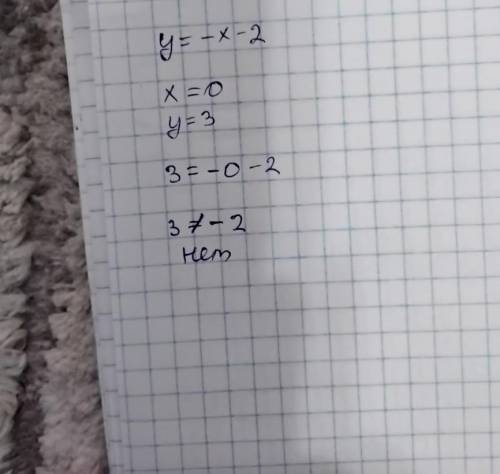 y = -x - 2
x = 0
y = 3
3 = -0 - 2
3 ≠ -2
нет